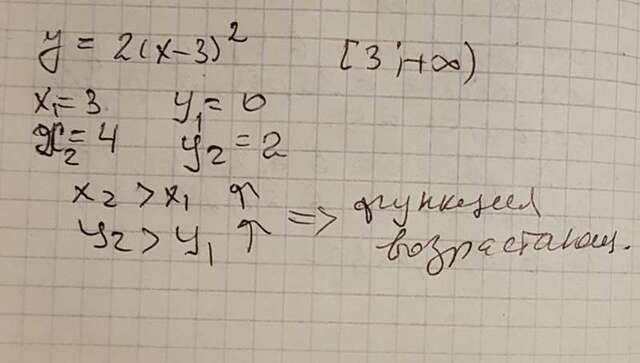 y = 2(x-3)² [3;+∞)
x₁=3 y₁=0
x₂=4 y₂=2
x₂ > x₁ ↑
y₂ > y₁ ↑ => функция
возрастающ.